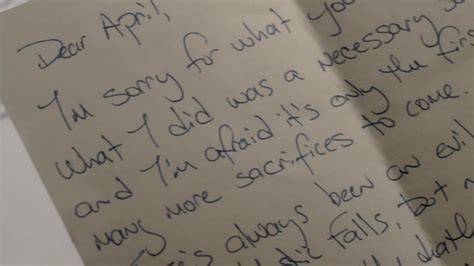 Dear April,
I'm sorry for what you
What I did was a necessary
and I'm afraid it's only the firs
many more sacrifices to come.
always been an evil
falls, but